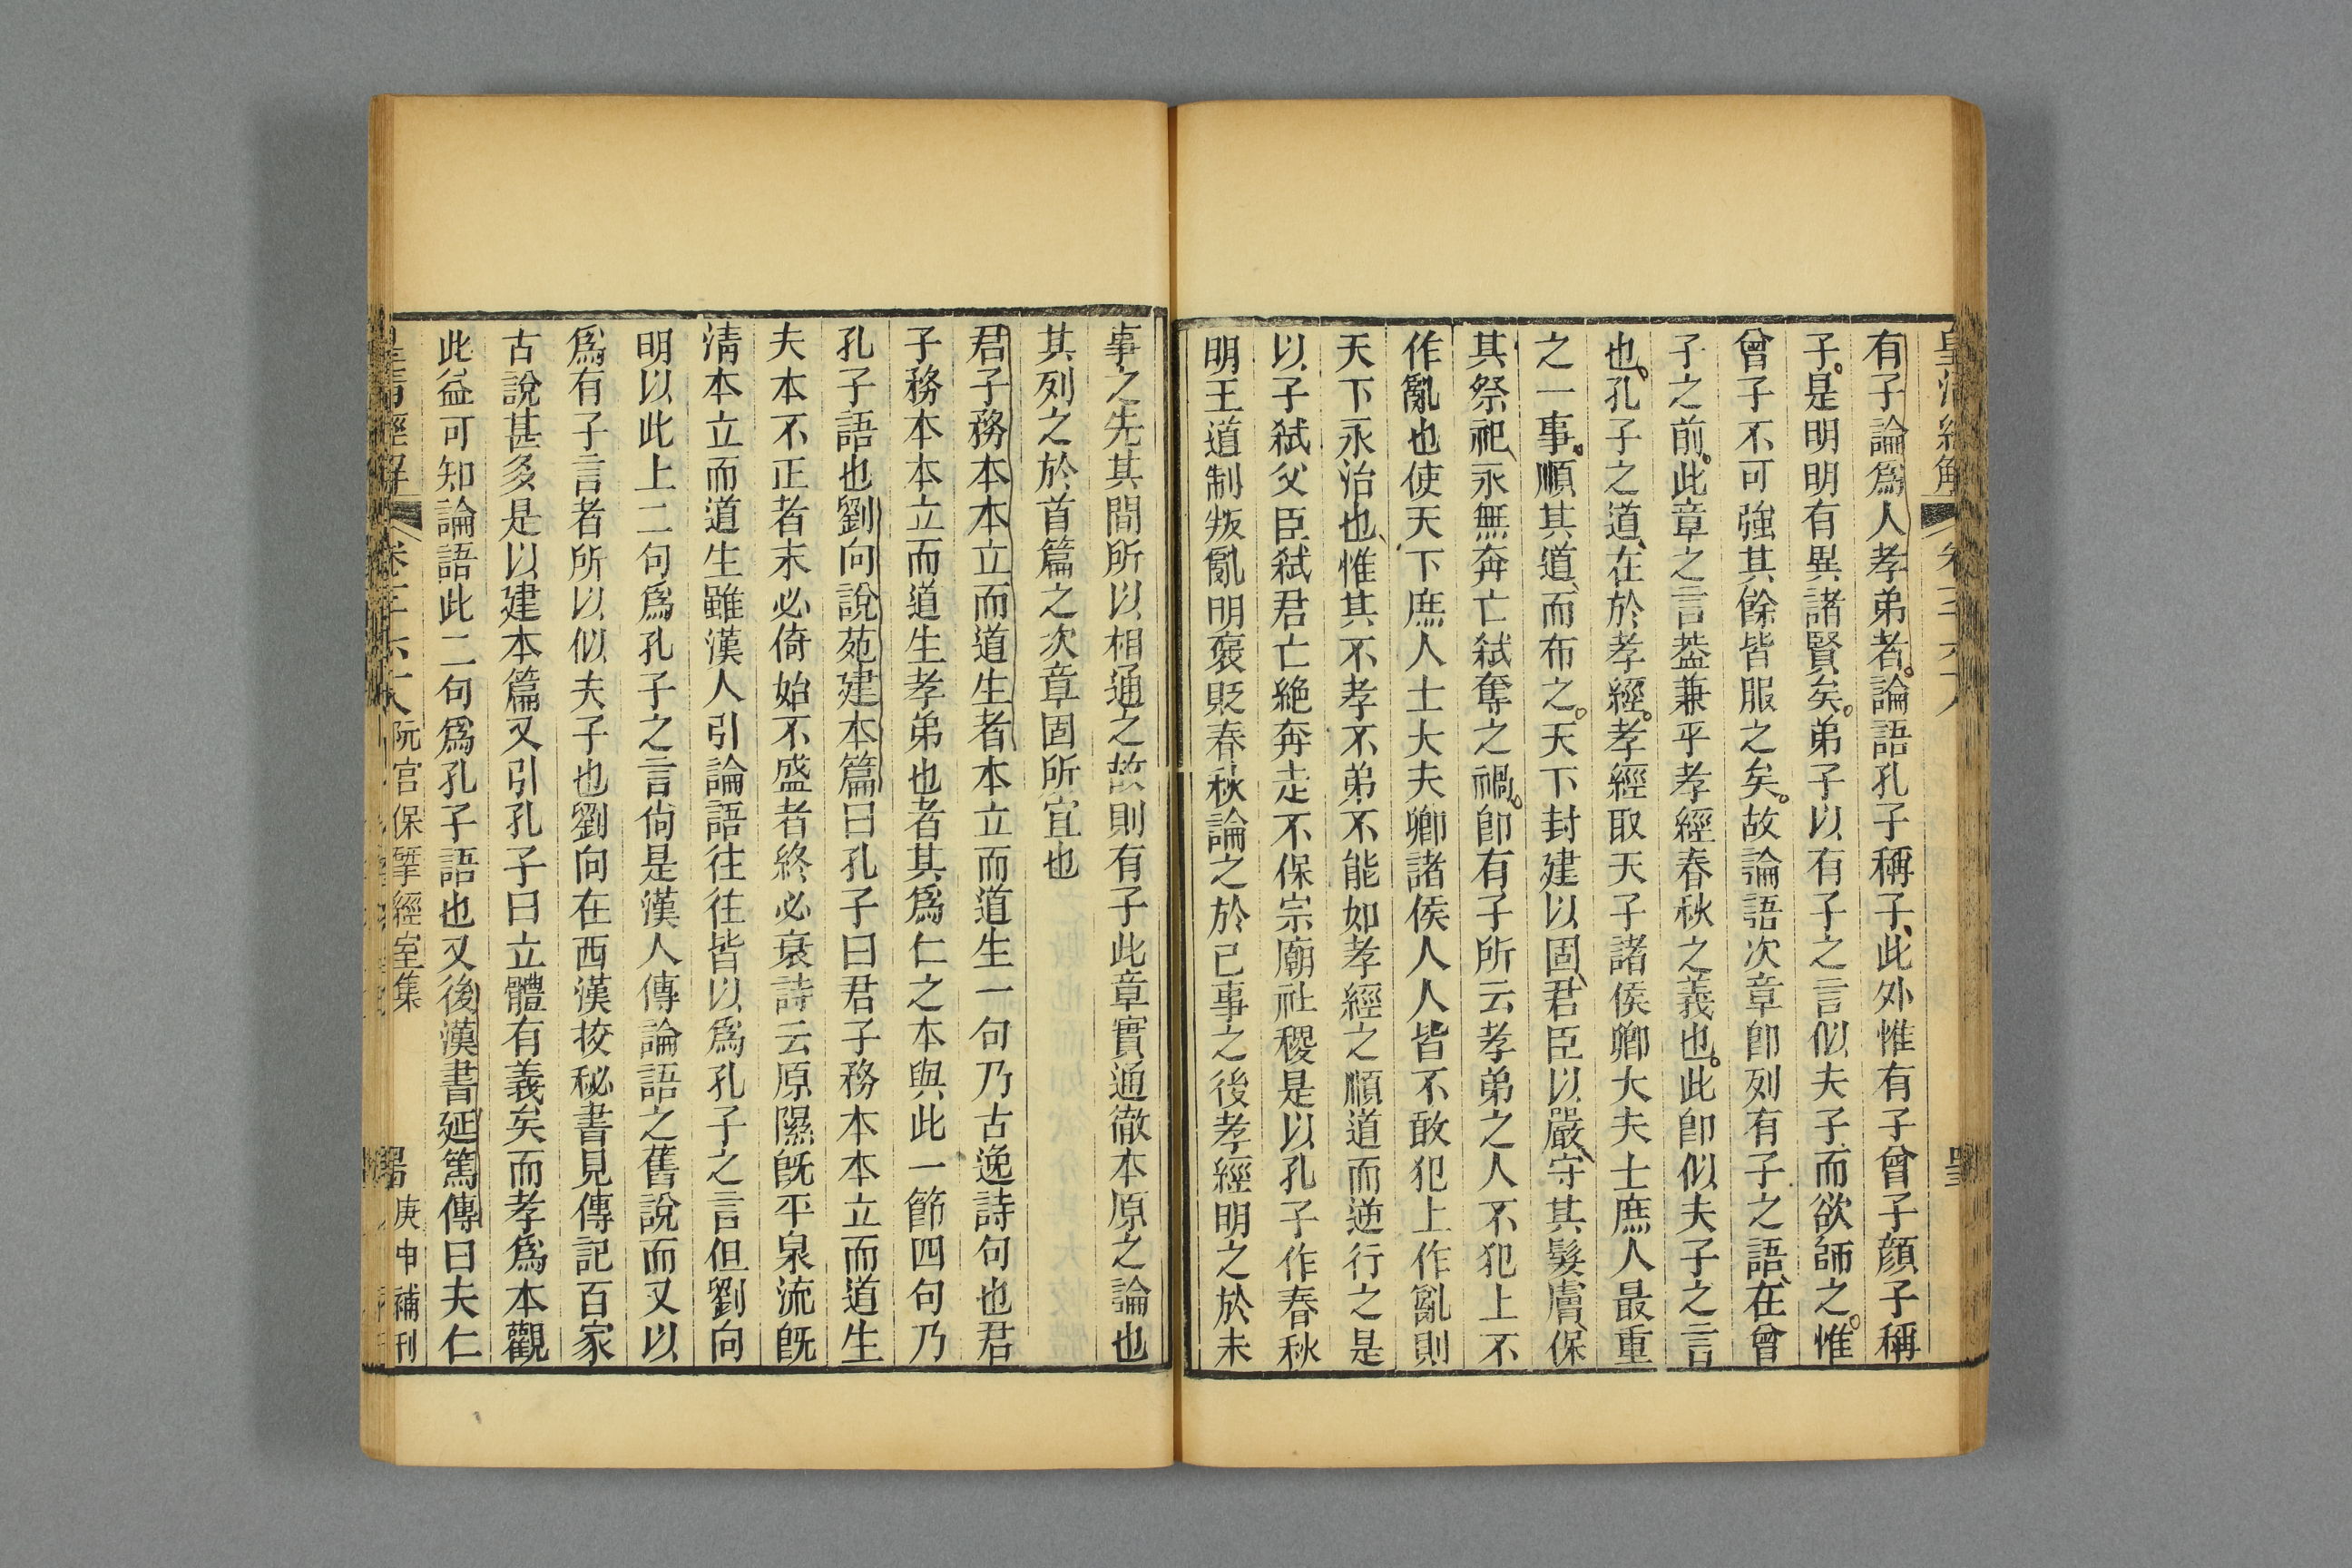 有子論爲人孝弟者。論語孔子稱子、此外惟有子曾子顏子稱
子。是明明有異諸賢矣。弟子以有子之言似夫子、而欲師之。惟
曾子不可強其餘皆服之矣。故論語次章卽列有子之語、在曾
子之前。此章之言葢兼乎孝經春秋之義也。此卽似夫子之言
也。孔子之道、在於孝經。孝經取天子諸侯卿大夫士庶人最重
之一事。順其道、而布之。天下封建以固、君臣以嚴、守其髮膚、保
其祭祀、永無奔亡弒奪之禍。卽有子所云孝弟之人不犯上不
作亂也使天下庶人士大夫卿諸侯人人皆不敢犯上作亂則
天下永治也、惟其不孝不弟不能如孝經之順道而逆行之是
以子弒父臣弒君亡絕奔走不保宗廟社稷是以孔子作春秋
明王道制叛亂明褒貶春秋論之於已事之後孝經明之於未
事之先其間所以相通之故則有子此章實通徹本原之論也
其列之於首篇之次章固所宜也
君子務本本立而道生者本立而道生一句乃古逸詩句也君
子務本本立而道生孝弟也者其爲仁之本與此一節四句乃
孔子語也劉向說苑建本篇曰孔子曰君子務本本立而道生
夫本不正者末必倚始不盛者終必衰詩云原隰旣平泉流旣
淸本立而道生雖漢人引論語往往皆以爲孔子之言但劉向
明以此上二句爲孔子之言尙是漢人傳論語之舊說而又以
爲有子言者所以似夫子也劉向在西漢挍秘書見傳記百家
古說甚多是以建本篇又引孔子曰立體有義矣而孝爲本觀
此益可知論語此二句爲孔子語也又後漢書延篤傳曰夫仁
皇清經解 阮宮保揅經室集 庚申補刊